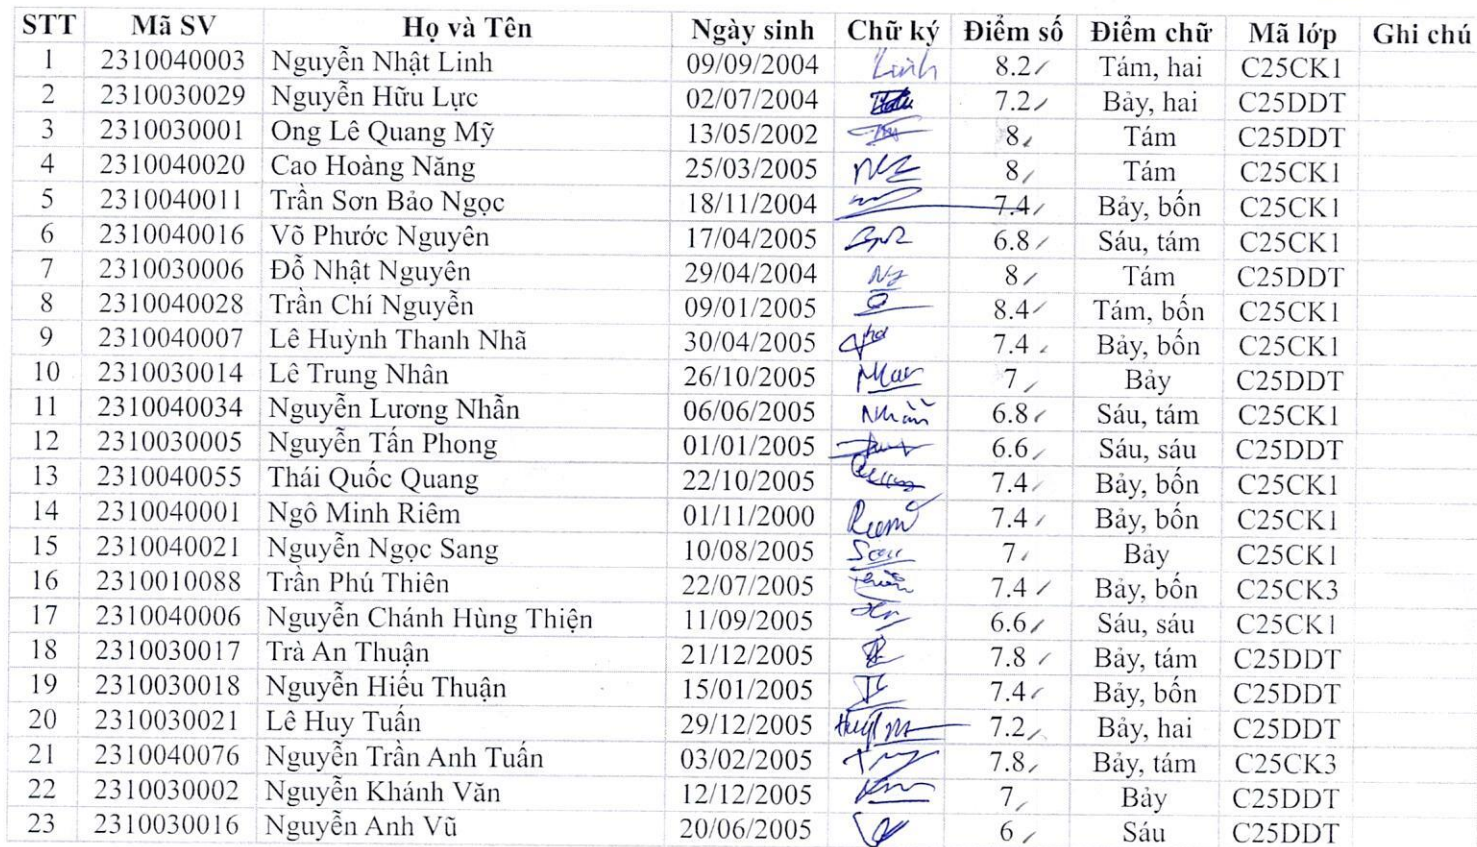 STT Mã SV Họ và Tên Ngày sinh Chữ ký Điểm số Điểm chữ Mã lớp Ghi chú
1 2310040003 Nguyễn Nhật Linh 09/09/2004 Linh 8.2 Tám, hai C25CK1
2 2310030029 Nguyễn Hữu Lực 02/07/2004 7.2 Bảy, hai C25DDT
3 2310030001 Ong Lê Quang Mỹ 13/05/2002 8 Tám C25DDT
4 2310040020 Cao Hoàng Năng 25/03/2005 8 Tám C25CK1
5 2310040011 Trần Sơn Bảo Ngọc 18/11/2004 7.4 Bảy, bốn C25CK1
6 2310040016 Võ Phước Nguyên 17/04/2005 6.8 Sáu, tám C25CK1
7 2310030006 Đỗ Nhật Nguyên 29/04/2004 8 Tám C25DDT
8 2310040028 Trần Chí Nguyễn 09/01/2005 8.4 Tám, bốn C25CK1
9 2310040007 Lê Huỳnh Thanh Nhã 30/04/2005 7.4 Bảy, bốn C25CK1
10 2310030014 Lê Trung Nhân 26/10/2005 7 Bảy C25DDT
11 2310040034 Nguyễn Lương Nhẫn 06/06/2005 Nhẫn 6.8 Sáu, tám C25CK1
12 2310030005 Nguyễn Tấn Phong 01/01/2005 6.6 Sáu, sáu C25DDT
13 2310040055 Thái Quốc Quang 22/10/2005 7.4 Bảy, bốn C25CK1
14 2310040001 Ngô Minh Riêm 01/11/2000 7.4 Bảy, bốn C25CK1
15 2310040021 Nguyễn Ngọc Sang 10/08/2005 7 Bảy C25CK1
16 2310010088 Trần Phú Thiên 22/07/2005 7.4 Bảy, bốn C25CK3
17 2310040006 Nguyễn Chánh Hùng Thiện 11/09/2005 6.6 Sáu, sáu C25CK1
18 2310030017 Trà An Thuận 21/12/2005 7.8 Bảy, tám C25DDT
19 2310030018 Nguyễn Hiếu Thuận 15/01/2005 7.4 Bảy, bốn C25DDT
20 2310030021 Lê Huy Tuấn 29/12/2005 7.2 Bảy, hai C25DDT
21 2310040076 Nguyễn Trần Anh Tuấn 03/02/2005 7.8 Bảy, tám C25CK3
22 2310030002 Nguyễn Khánh Văn 12/12/2005 7 Bảy C25DDT
23 2310030016 Nguyễn Anh Vũ 20/06/2005 6 Sáu C25DDT